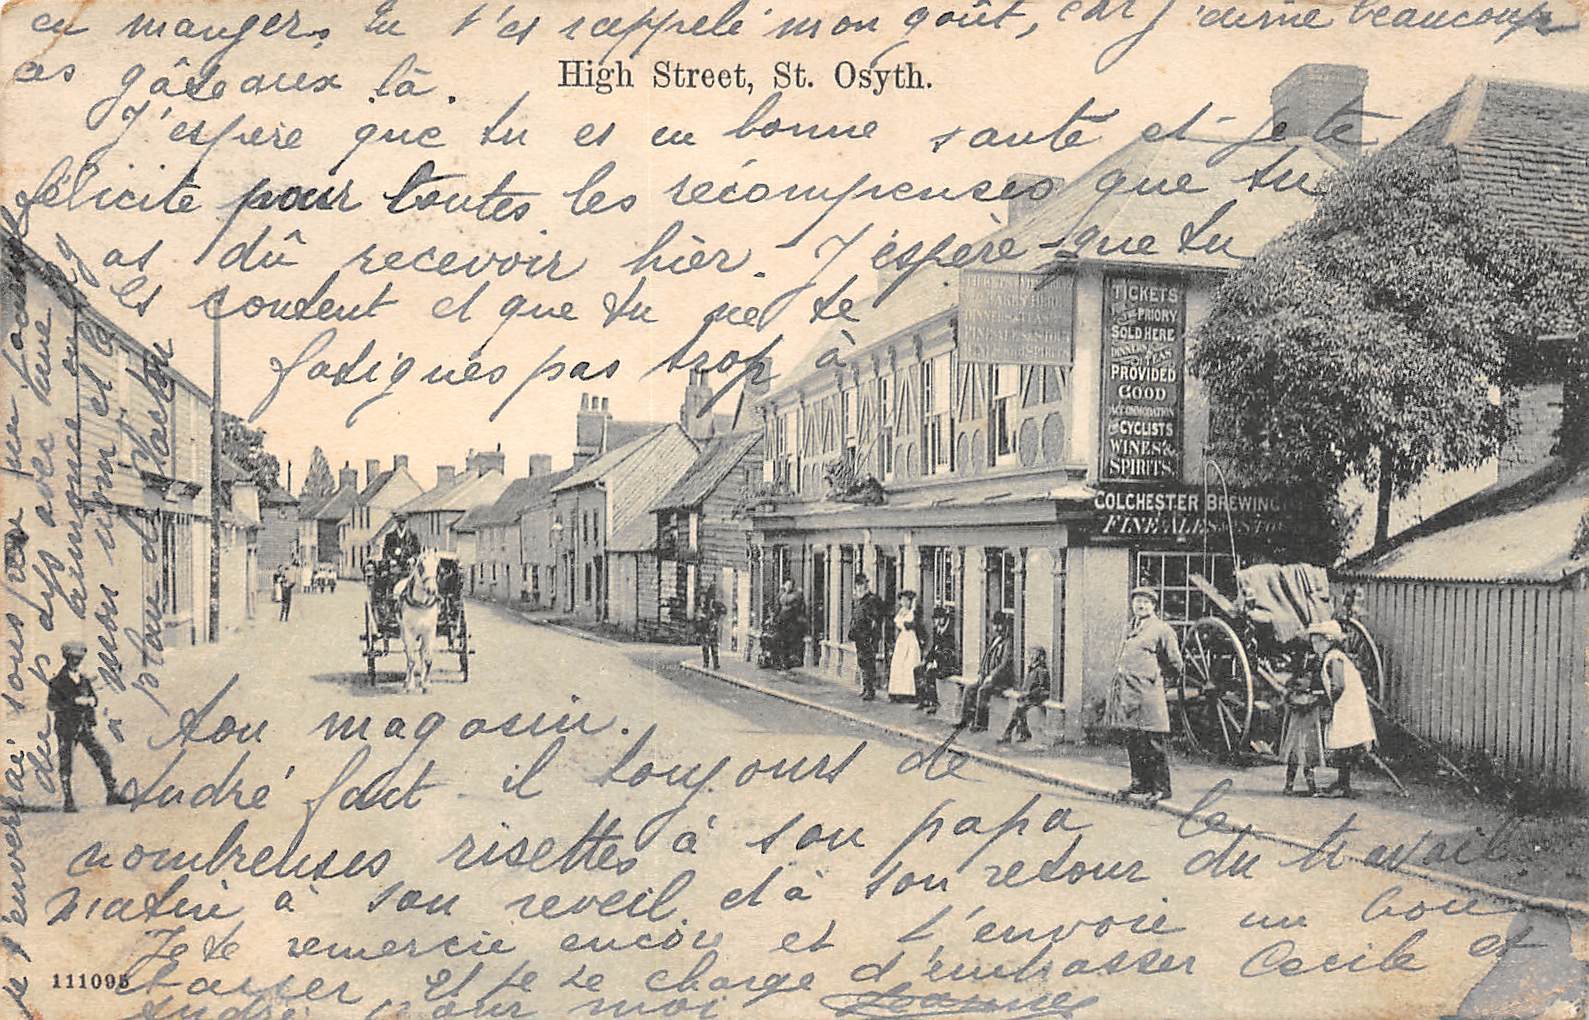 en manger. Tu t'es rappelé mon goût, car j'aime beaucoup
ces gâteaux là.
High Street, St. Osyth.
J'espère que tu es en bonne santé et je te
félicite pour toutes les récompenses que tu
as dû recevoir hier. J'espère que tu
es content et que tu ne te
fatigués pas trop à
ton magasin.
André fait il toujours de
nombreuses risettes à son papa le
matin à son reveil et à son retour du travail
Je te remercie encore et t'envoie un bon
baiser et je te charge d'embrasser Cecile et
André pour moi
TICKETS
PRIORY
SOLD HERE
DINNERS
TEAS
PROVIDED
GOOD
ACCOMMODATION
FOR CYCLISTS
WINES &
SPIRITS.
COLCHESTER BREWING
FINE ALES
111095
je t'enverrai sous peu
du pays avec une
mon nom et le